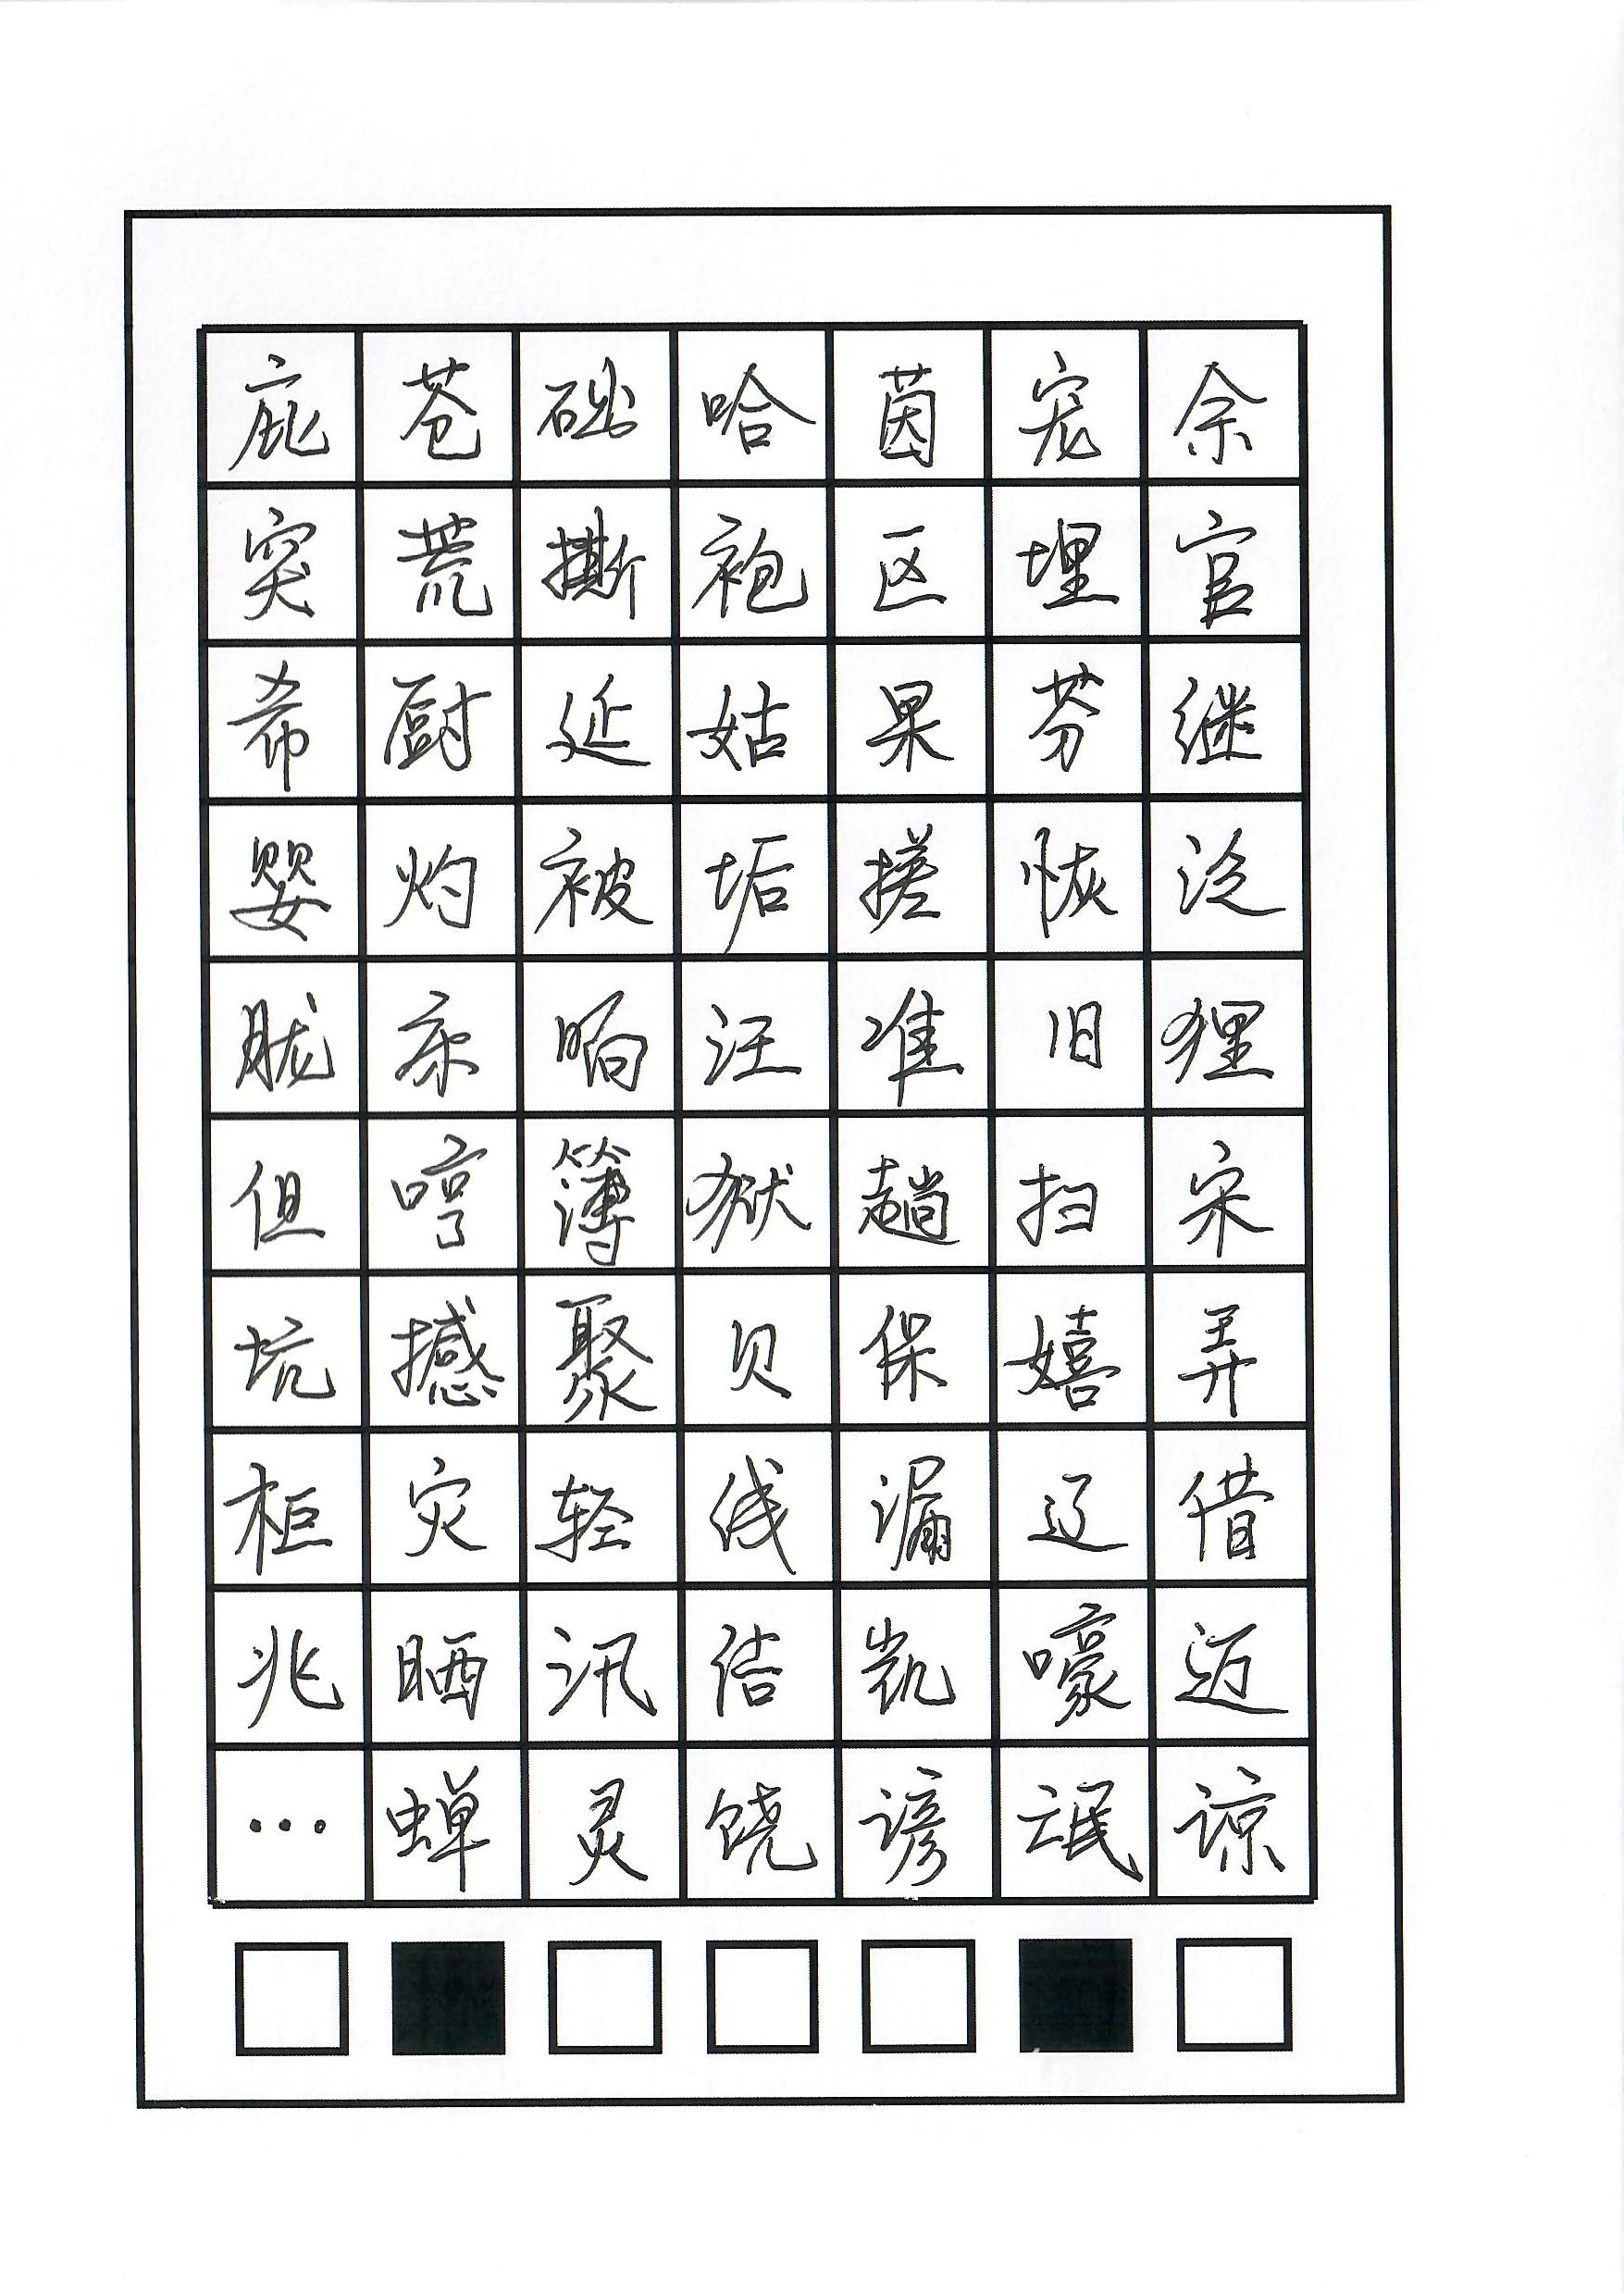 庇苍础哈茵宠余
突荒撕袍区埋官
希厨延姑果芬继
婴灼被垢搓恢泛
胧亦晌汪准旧狸
但哼簿狱趟扫宋
坑撼聚贝保嬉弄
柜灾轻线漏辽借
兆晒汛洁凯嚎迈
…蝉灵饶谚氓谅